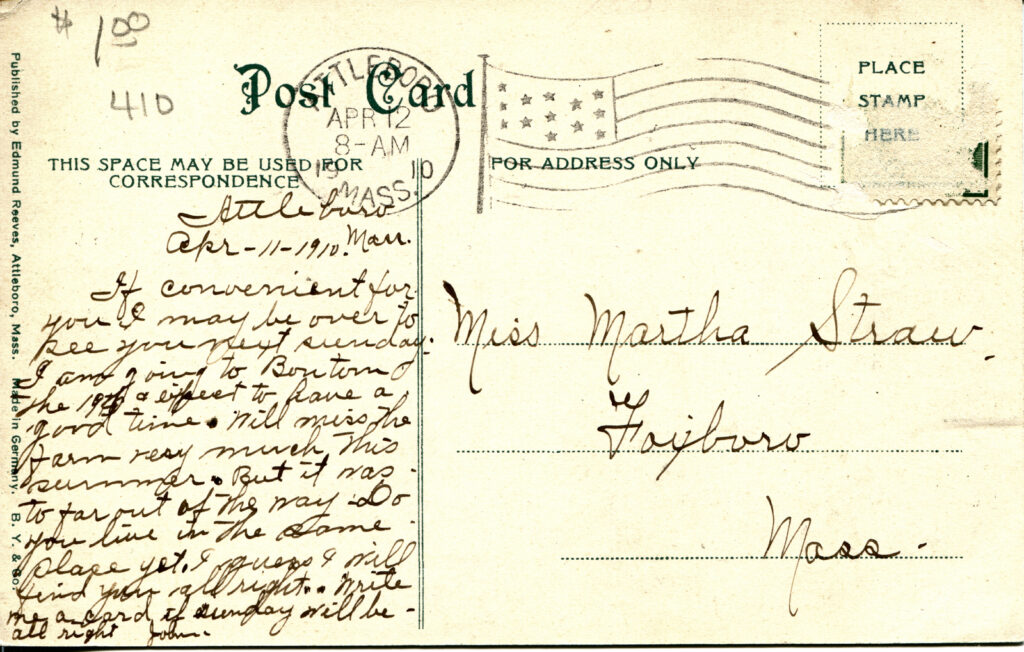 $ 1.00
410
Post Card
ATTLEBORO
APR 12
8-AM
19 10
MASS.
PLACE
STAMP
HERE
THIS SPACE MAY BE USED FOR
CORRESPONDENCE
FOR ADDRESS ONLY
Published by Edmund Reeves, Attleboro, Mass. Made in Germany. B. Y. & Co.
Attleboro
Apr-11-1910. Mass.
If convenient for
you I may be over to
see you next sunday.
I am going to
the 19th & expect to have a
good time. Will miss the
farm very much this
summer. But it was
to far out of the way. Do
you live in the same
place yet. I guess I will
find you all right. Write
me a card if sunday will be
all right John.
Miss Martha Straw.
Foxboro
Mass.